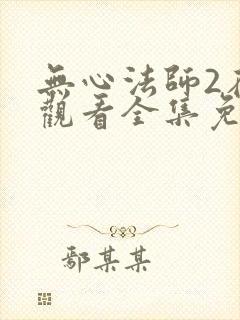 無心法師2
觀看全集免
鄢某某